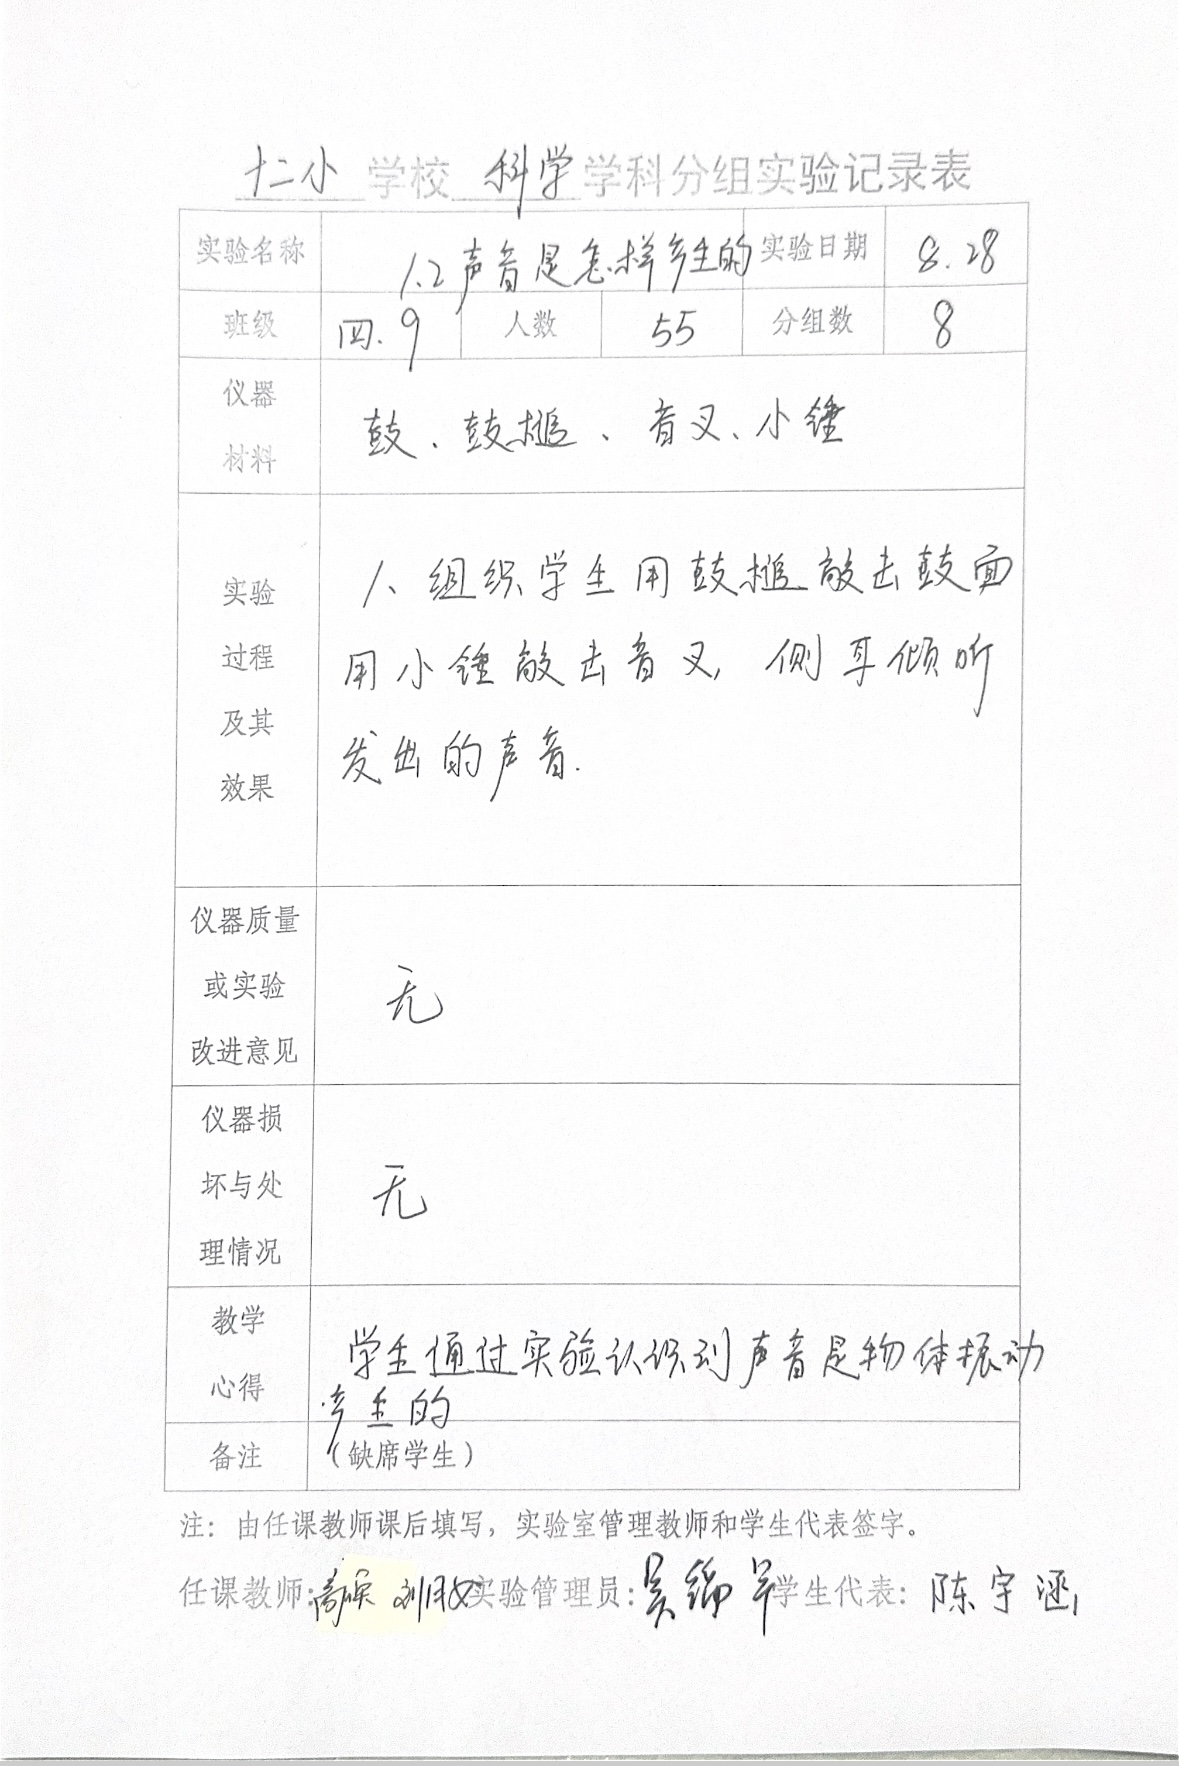 十二小 学校 科学 学科分组实验记录表
实验名称 1.2声音是怎样产生的 实验日期 8.28
班级 四.9 人数 55 分组数 8
仪器
材料
鼓、鼓槌、音叉、小锤
实验
过程
及其
效果
1、组织学生用鼓槌敲击鼓面
用小锤敲击音叉,侧耳倾听
发出的声音.
仪器质量
或实验
改进意见
无
仪器损
坏与处
理情况
无
教学
心得
学生通过实验认识到声音是物体振动
产生的
备注 (缺席学生)
注:由任课教师课后填写,实验室管理教师和学生代表签字。
任课教师: 实验管理员: 学生代表: 陈宇涵